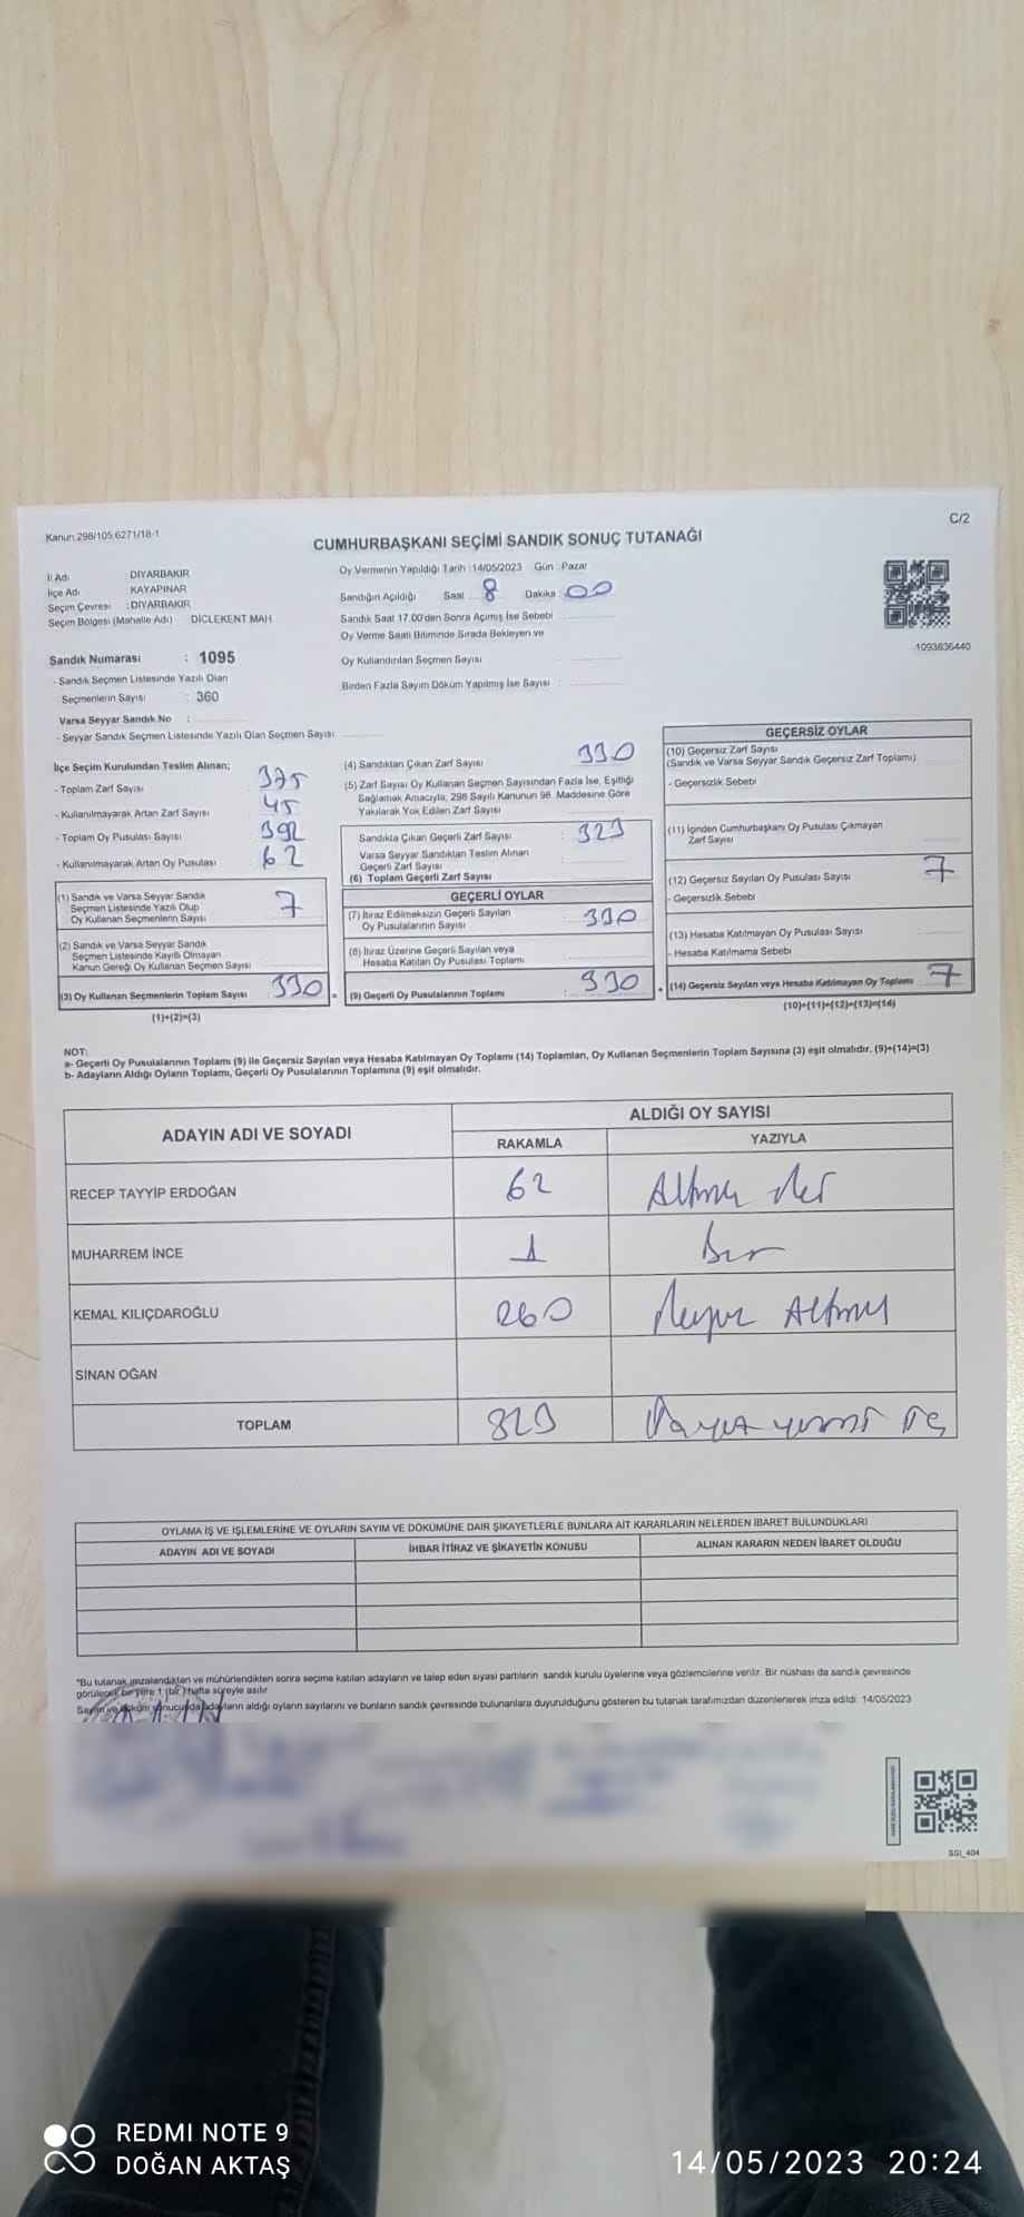 Kanun:298/105,6271/18-1
C/2
CUMHURBAŞKANI SEÇİMİ SANDIK SONUÇ TUTANAĞI
İl Adı : DİYARBAKIR
İlçe Adı : KAYAPINAR
Seçim Çevresi : DİYARBAKIR
Seçim Bölgesi (Mahalle Adı) DİCLEKENT MAH.
Oy Vermenin Yapıldığı Tarih :14/05/2023 Gün : Pazar
Sandığın Açıldığı Saat : 8 Dakika : 00
Sandık Saat 17.00'den Sonra Açılmış İse Sebebi
Oy Verme Saati Bitiminde Sırada Bekleyen ve
Oy Kullandırılan Seçmen Sayısı
Birden Fazla Sayım Döküm Yapılmış İse Sayısı :
1093636440
Sandık Numarası : 1095
- Sandık Seçmen Listesinde Yazılı Olan
Seçmenlerin Sayısı : 360
Varsa Seyyar Sandık No :
- Seyyar Sandık Seçmen Listesinde Yazılı Olan Seçmen Sayısı
İlçe Seçim Kurulundan Teslim Alınan;
- Toplam Zarf Sayısı : 375
- Kullanılmayarak Artan Zarf Sayısı 45
- Toplam Oy Pusulası Sayısı 392
- Kullanılmayarak Artan Oy Pusulası 62
(1) Sandık ve Varsa Seyyar Sandık
Seçmen Listesinde Yazılı Olup
Oy Kullanan Seçmenlerin Sayısı 7
(2) Sandık ve Varsa Seyyar Sandık
Seçmen Listesinde Kayıtlı Olmayan
Kanun Gereği Oy Kullanan Seçmen Sayısı
(3) Oy Kullanan Seçmenlerin Toplam Sayısı 330
(1)+(2)=(3)
(4) Sandıktan Çıkan Zarf Sayısı 330
(5) Zarf Sayısı Oy Kullanan Seçmen Sayısından Fazla İse, Eşitliği
Sağlamak Amacıyla, 298 Sayılı Kanunun 98. Maddesine Göre
Yakılarak Yok Edilen Zarf Sayısı
Sandıkta Çıkan Geçerli Zarf Sayısı : 323
Varsa Seyyar Sandıktan Teslim Alınan
Geçerli Zarf Sayısı
(6) Toplam Geçerli Zarf Sayısı
GEÇERLİ OYLAR
(7) İtiraz Edilmeksizin Geçerli Sayılan
Oy Pusulalarının Sayısı : 330
(8) İtiraz Üzerine Geçerli Sayılan veya
Hesaba Katılan Oy Pusulası Toplamı
(9) Geçerli Oy Pusulalarının Toplamı : 330
GEÇERSİZ OYLAR
(10) Geçersiz Zarf Sayısı
(Sandık ve Varsa Seyyar Sandık Geçersiz Zarf Toplamı)
- Geçersizlik Sebebi
(11) İçinden Cumhurbaşkanı Oy Pusulası Çıkmayan
Zarf Sayısı
(12) Geçersiz Sayılan Oy Pusulası Sayısı 7
- Geçersizlik Sebebi
(13) Hesaba Katılmayan Oy Pusulası Sayısı
- Hesaba Katılmama Sebebi
(14) Geçersiz Sayılan veya Hesaba Katılmayan Oy Toplamı 7
(10)+(11)+(12)+(13)=(14)
NOT:
a- Geçerli Oy Pusulalarının Toplamı (9) ile Geçersiz Sayılan veya Hesaba Katılmayan Oy Toplamı (14) Toplamları, Oy Kullanan Seçmenlerin Toplam Sayısına (3) eşit olmalıdır. (9)+(14)=(3)
b- Adayların Aldığı Oyların Toplamı, Geçerli Oy Pusulalarının Toplamına (9) eşit olmalıdır.
ADAYIN ADI VE SOYADI ALDIĞI OY SAYISI
RAKAMLA YAZIYLA
RECEP TAYYİP ERDOĞAN 62 Altmış
MUHARREM İNCE 1 Bir
KEMAL KILIÇDAROĞLU 260 Altmış
SİNAN OĞAN
TOPLAM 323
OYLAMA İŞ VE İŞLEMLERİNE VE OYLARIN SAYIM VE DÖKÜMÜNE DAİR ŞİKAYETLERLE BUNLARA AİT KARARLARIN NELERDEN İBARET BULUNDUKLARI
ADAYIN ADI VE SOYADI İHBAR İTİRAZ VE ŞİKAYETİN KONUSU ALINAN KARARIN NEDEN İBARET OLDUĞU
*Bu tutanak imzalandıktan ve mühürlendikten sonra seçime katılan adayların ve talep eden siyasi partilerin sandık kurulu üyelerine veya gözlemcilerine verilir. Bir nüshası da sandık çevresinde
görülecek bir yere 1 (bir) hafta süreyle asılır
Sayım ve döküm sonucunda adayların aldığı oyların sayılarını ve bunların sandık çevresinde bulunanlara duyurulduğunu gösteren bu tutanak tarafımızdan düzenlenerek imza edildi. 14/05/2023
SGI_404
REDMI NOTE 9
DOĞAN AKTAŞ
14/05/2023 20:24